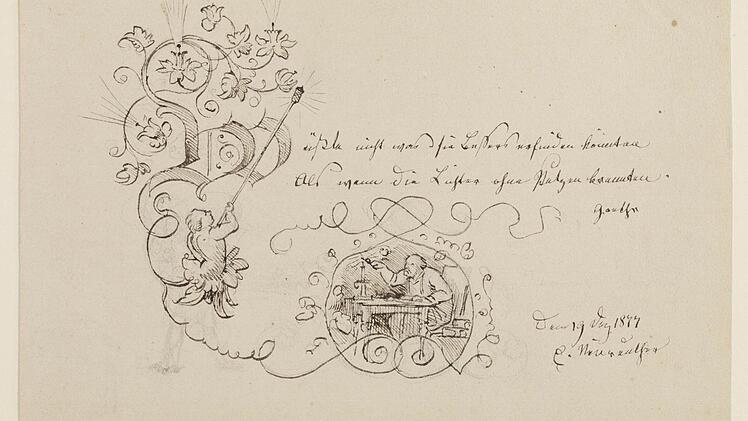 Wüßte nicht was sie Bessers erfinden könnten
Als wenn die Lichter ohne Putzen brennten.
Goethe
Den 19 Dez 1877
E. Neureuther